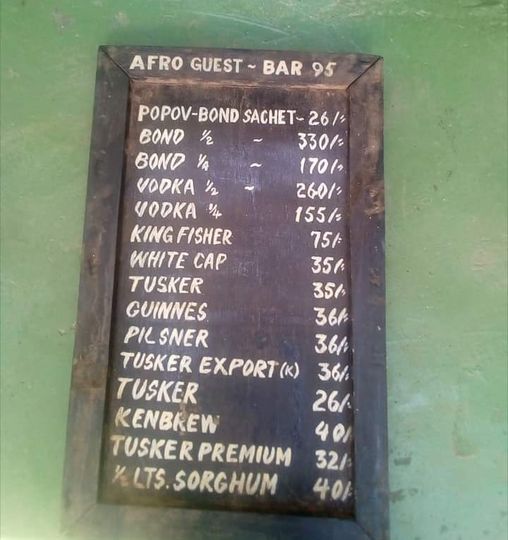 AFRO GUEST ~ BAR 95
POPOV-BOND SACHET ~ 26/=
BOND ½ ~ 330/=
BOND ¼ ~ 170/=
VODKA ½ ~ 260/=
VODKA ¼ 155/=
KING FISHER 75/=
WHITE CAP 35/=
TUSKER 35/=
GUINNES 36/=
PILSNER 36/=
TUSKER EXPORT (K) 36/=
TUSKER 26/=
KENBREW 40/
TUSKER PREMIUM 32/=
½ LTS. SORGHUM 40/=